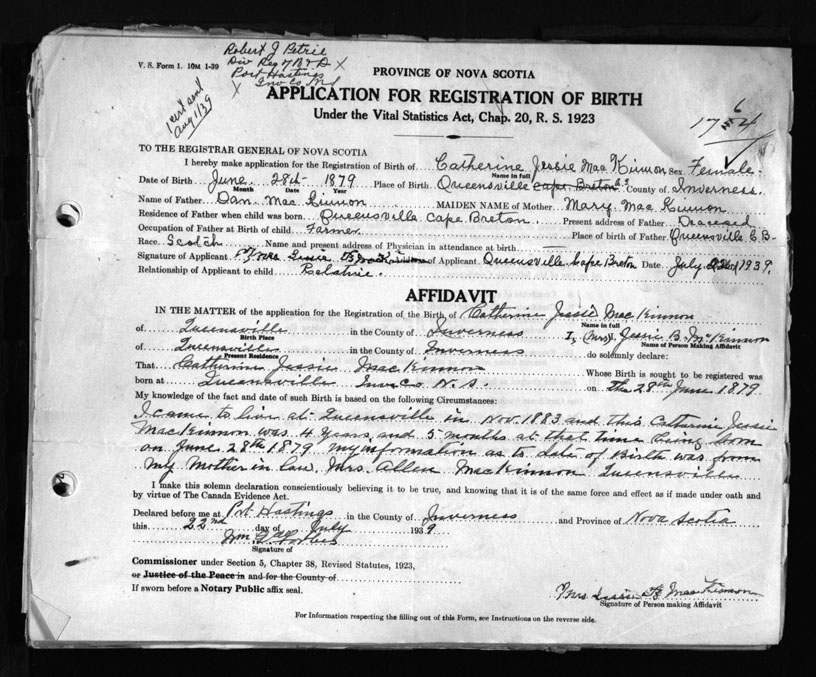 Robert J Petrie
V. S. Form 1. 10M 1-39
Div Reg of B & D X
Port Hastings
X Inv Co NS
1 cert sent
Aug 1/39
PROVINCE OF NOVA SCOTIA
APPLICATION FOR REGISTRATION OF BIRTH
Under the Vital Statistics Act, Chap. 20, R. S. 1923
TO THE REGISTRAR GENERAL OF NOVA SCOTIA
I hereby make application for the Registration of Birth of Catherine Jessie MacKinnon Sex Female.
Name in full
Date of Birth June 28th 1879 Place of Birth Queensville Cape Breton County of Inverness.
Month Date Year
Name of Father Dan MacKinnon MAIDEN NAME of Mother Mary MacKinnon
Residence of Father when child was born Queensville Cape Breton Present address of Father Deceased
Occupation of Father at Birth of child Farmer Place of birth of Father Queensville C.B.
Race Scotch Name and present address of Physician in attendance at birth
Signature of Applicant Mrs Jessie B MacKinnon of Applicant Queensville Cape Breton Date July 22nd 1939.
Relationship of Applicant to child Relative.
AFFIDAVIT
IN THE MATTER of the application for the Registration of the Birth of Catherine Jessie MacKinnon
Name in full
of Queensville in the County of Inverness I, (Mrs) Jessie B. McKinnon
Birth Place Name of Person Making Affidavit
of Queensville in the County of Inverness do solemnly declare:
Present Residence
That Catherine Jessie MacKinnon Whose Birth is sought to be registered was
born at Queensville Inv. Co N.S. on the 28th June 1879
My knowledge of the fact and date of such Birth is based on the following Circumstances:
I came to live at Queensville in Nov. 1883 and this Catherine Jessie
MacKinnon was 4 years and 5 months at that time being born
on June 28th 1879 my information as to date of Birth was from
my Mother in law, Mrs. Allen MacKinnon Queensville
I make this solemn declaration conscientiously believing it to be true, and knowing that it is of the same force and effect as if made under oath and
by virtue of The Canada Evidence Act.
Declared before me at Port Hastings in the County of Inverness and Province of Nova Scotia
this 22nd day of July 1939
Signature of
Commissioner under Section 5, Chapter 38, Revised Statutes, 1923,
or Justice of the Peace in and for the County of
If sworn before a Notary Public affix seal.
Mrs Jessie B MacKinnon
Signature of Person making Affidavit
For Information respecting the filling out of this Form, see Instructions on the reverse side.